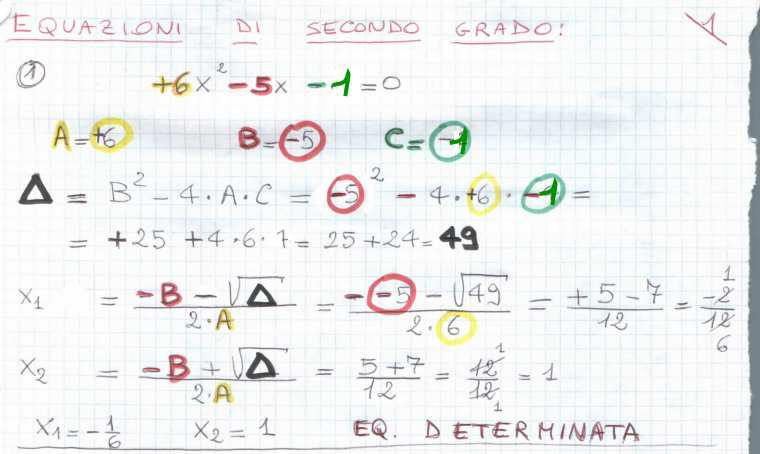 EQUAZIONI DI SECONDO GRADO: 1
① +6x² -5x -1 = 0
A = +6 B = -5 C = -1
Δ = B² - 4·A·C = -5² - 4·+6·-1 =
= +25 +4·6·1 = 25+24 = 49
x1 = -B - √Δ / 2·A = - -5 - √49 / 2·6 = +5-7 / 12 = -2 / 12 1 6
x2 = -B + √Δ / 2·A = 5+7 / 12 = 12 / 12 1 1 = 1
x1 = -1/6 x2 = 1 EQ. DETERMINATA